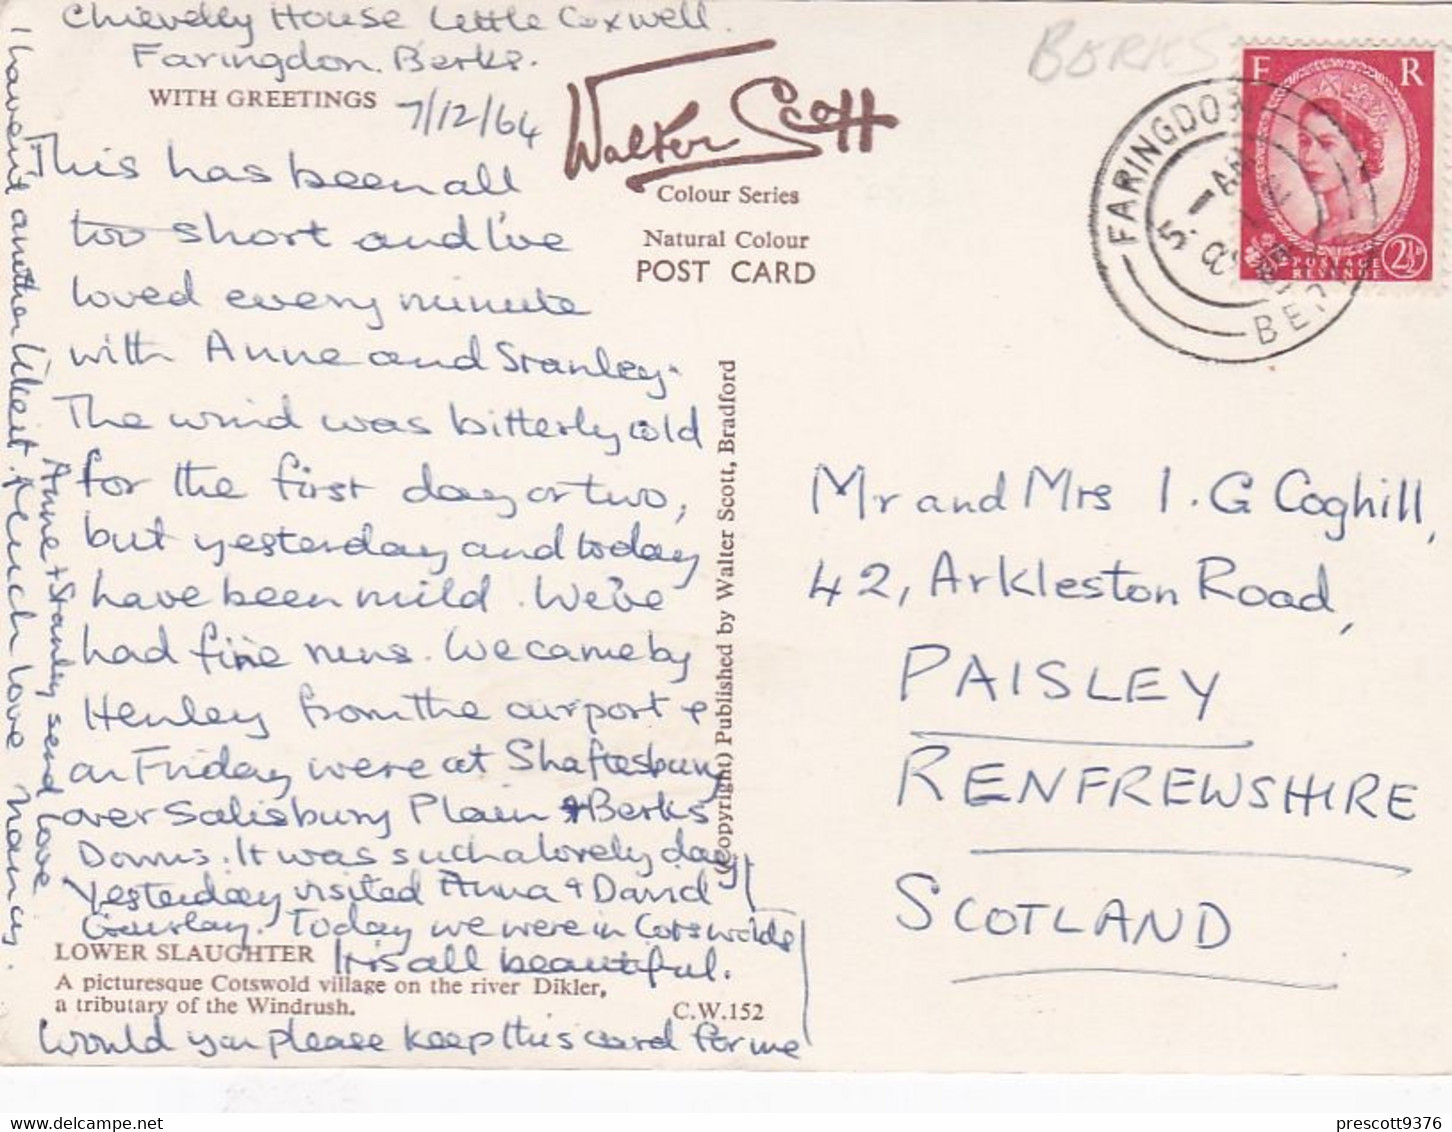 Chieveley House Little Coxwell.
Faringdon. Berks.
WITH GREETINGS
7/12/64
This has been all
too short and I've
loved every minute
with Anne and Stanley.
The wind was bitterly cold
for the first day or two,
but yesterday and today
have been mild. We've
had fine runs. We came by
Henley from the airport &
on Friday were at Shaftesbury
over Salisbury Plain & Berks
Downs. It was such a lovely day
Yesterday visited Anna & David
Gourlay. Today we were in Cotswolds
It is all beautiful.
Would you please keep this card for me
I haven't another like it. Much love Nancy.
Anne & Stanley send love
LOWER SLAUGHTER
A picturesque Cotswold village on the river Dikler,
a tributary of the Windrush.
C.W.152
Walter Scott
Colour Series
Natural Colour
POST CARD
(Copyright) Published by Walter Scott, Bradford
BERKS
E R
POSTAGE
REVENUE
2½D
FARINGDON
BERKS
Mr and Mrs I. G Coghill,
42, Arkleston Road,
PAISLEY
RENFREWSHIRE
SCOTLAND
delcampe.net
prescott9376